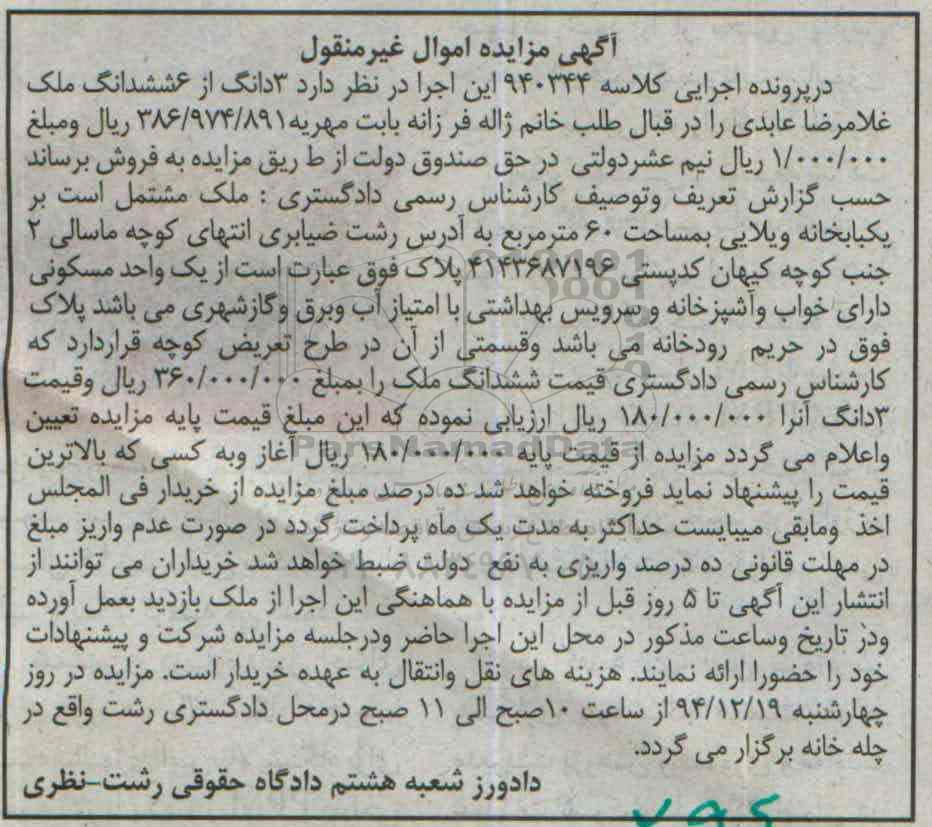 آگهی مزایده اموال غیرمنقول
درپرونده اجرایی کلاسه ۹۴۰۳۴۴ این اجرا در نظر دارد ۳دانگ از ۶ششدانگ ملک
غلامرضا عابدی را در قبال طلب خانم ژاله فر زانه بابت مهریه۳۸۶/۹۷۴/۸۹۱ ریال ومبلغ
۱/۰۰۰/۰۰۰ ریال نیم عشردولتی در حق صندوق دولت از ط ریق مزایده به فروش برساند
حسب گزارش تعریف وتوصیف کارشناس رسمی دادگستری : ملک مشتمل است بر
یکبابخانه ویلایی بمساحت ۶۰ مترمربع به آدرس رشت ضیابری انتهای کوچه ماسالی ۲
جنب کوچه کیهان کدپستی ۴۱۴۳۶۸۷۱۹۶ پلاک فوق عبارت است از یک واحد مسکونی
دارای خواب وآشپزخانه و سرویس بهداشتی با امتیاز آب وبرق وگازشهری می باشد پلاک
فوق در حریم رودخانه می باشد وقسمتی از آن در طرح تعریض کوچه قراردارد که
کارشناس رسمی دادگستری قیمت ششدانگ ملک را بمبلغ ۳۶۰/۰۰۰/۰۰۰ ریال وقیمت
۳دانگ آنرا ۱۸۰/۰۰۰/۰۰۰ ریال ارزیابی نموده که این مبلغ قیمت پایه مزایده تعیین
واعلام می گردد مزایده از قیمت پایه ۱۸۰/۰۰۰/۰۰۰ ریال آغاز وبه کسی که بالاترین
قیمت را پیشنهاد نماید فروخته خواهد شد ده درصد مبلغ مزایده از خریدار فی المجلس
اخذ ومابقی میبایست حداکثر به مدت یک ماه پرداخت گردد در صورت عدم واریز مبلغ
در مهلت قانونی ده درصد واریزی به نفع دولت ضبط خواهد شد خریداران می توانند از
انتشار این آگهی تا ۵ روز قبل از مزایده با هماهنگی این اجرا از ملک بازدید بعمل آورده
ودر تاریخ وساعت مذکور در محل این اجرا حاضر ودرجلسه مزایده شرکت و پیشنهادات
خود را حضورا ارائه نمایند. هزینه های نقل وانتقال به عهده خریدار است. مزایده در روز
چهارشنبه ۹۴/۱۲/۱۹ از ساعت ۱۰صبح الی ۱۱ صبح درمحل دادگستری رشت واقع در
چله خانه برگزار می گردد.
دادورز شعبه هشتم دادگاه حقوقی رشت-نظری
ParsNamadData